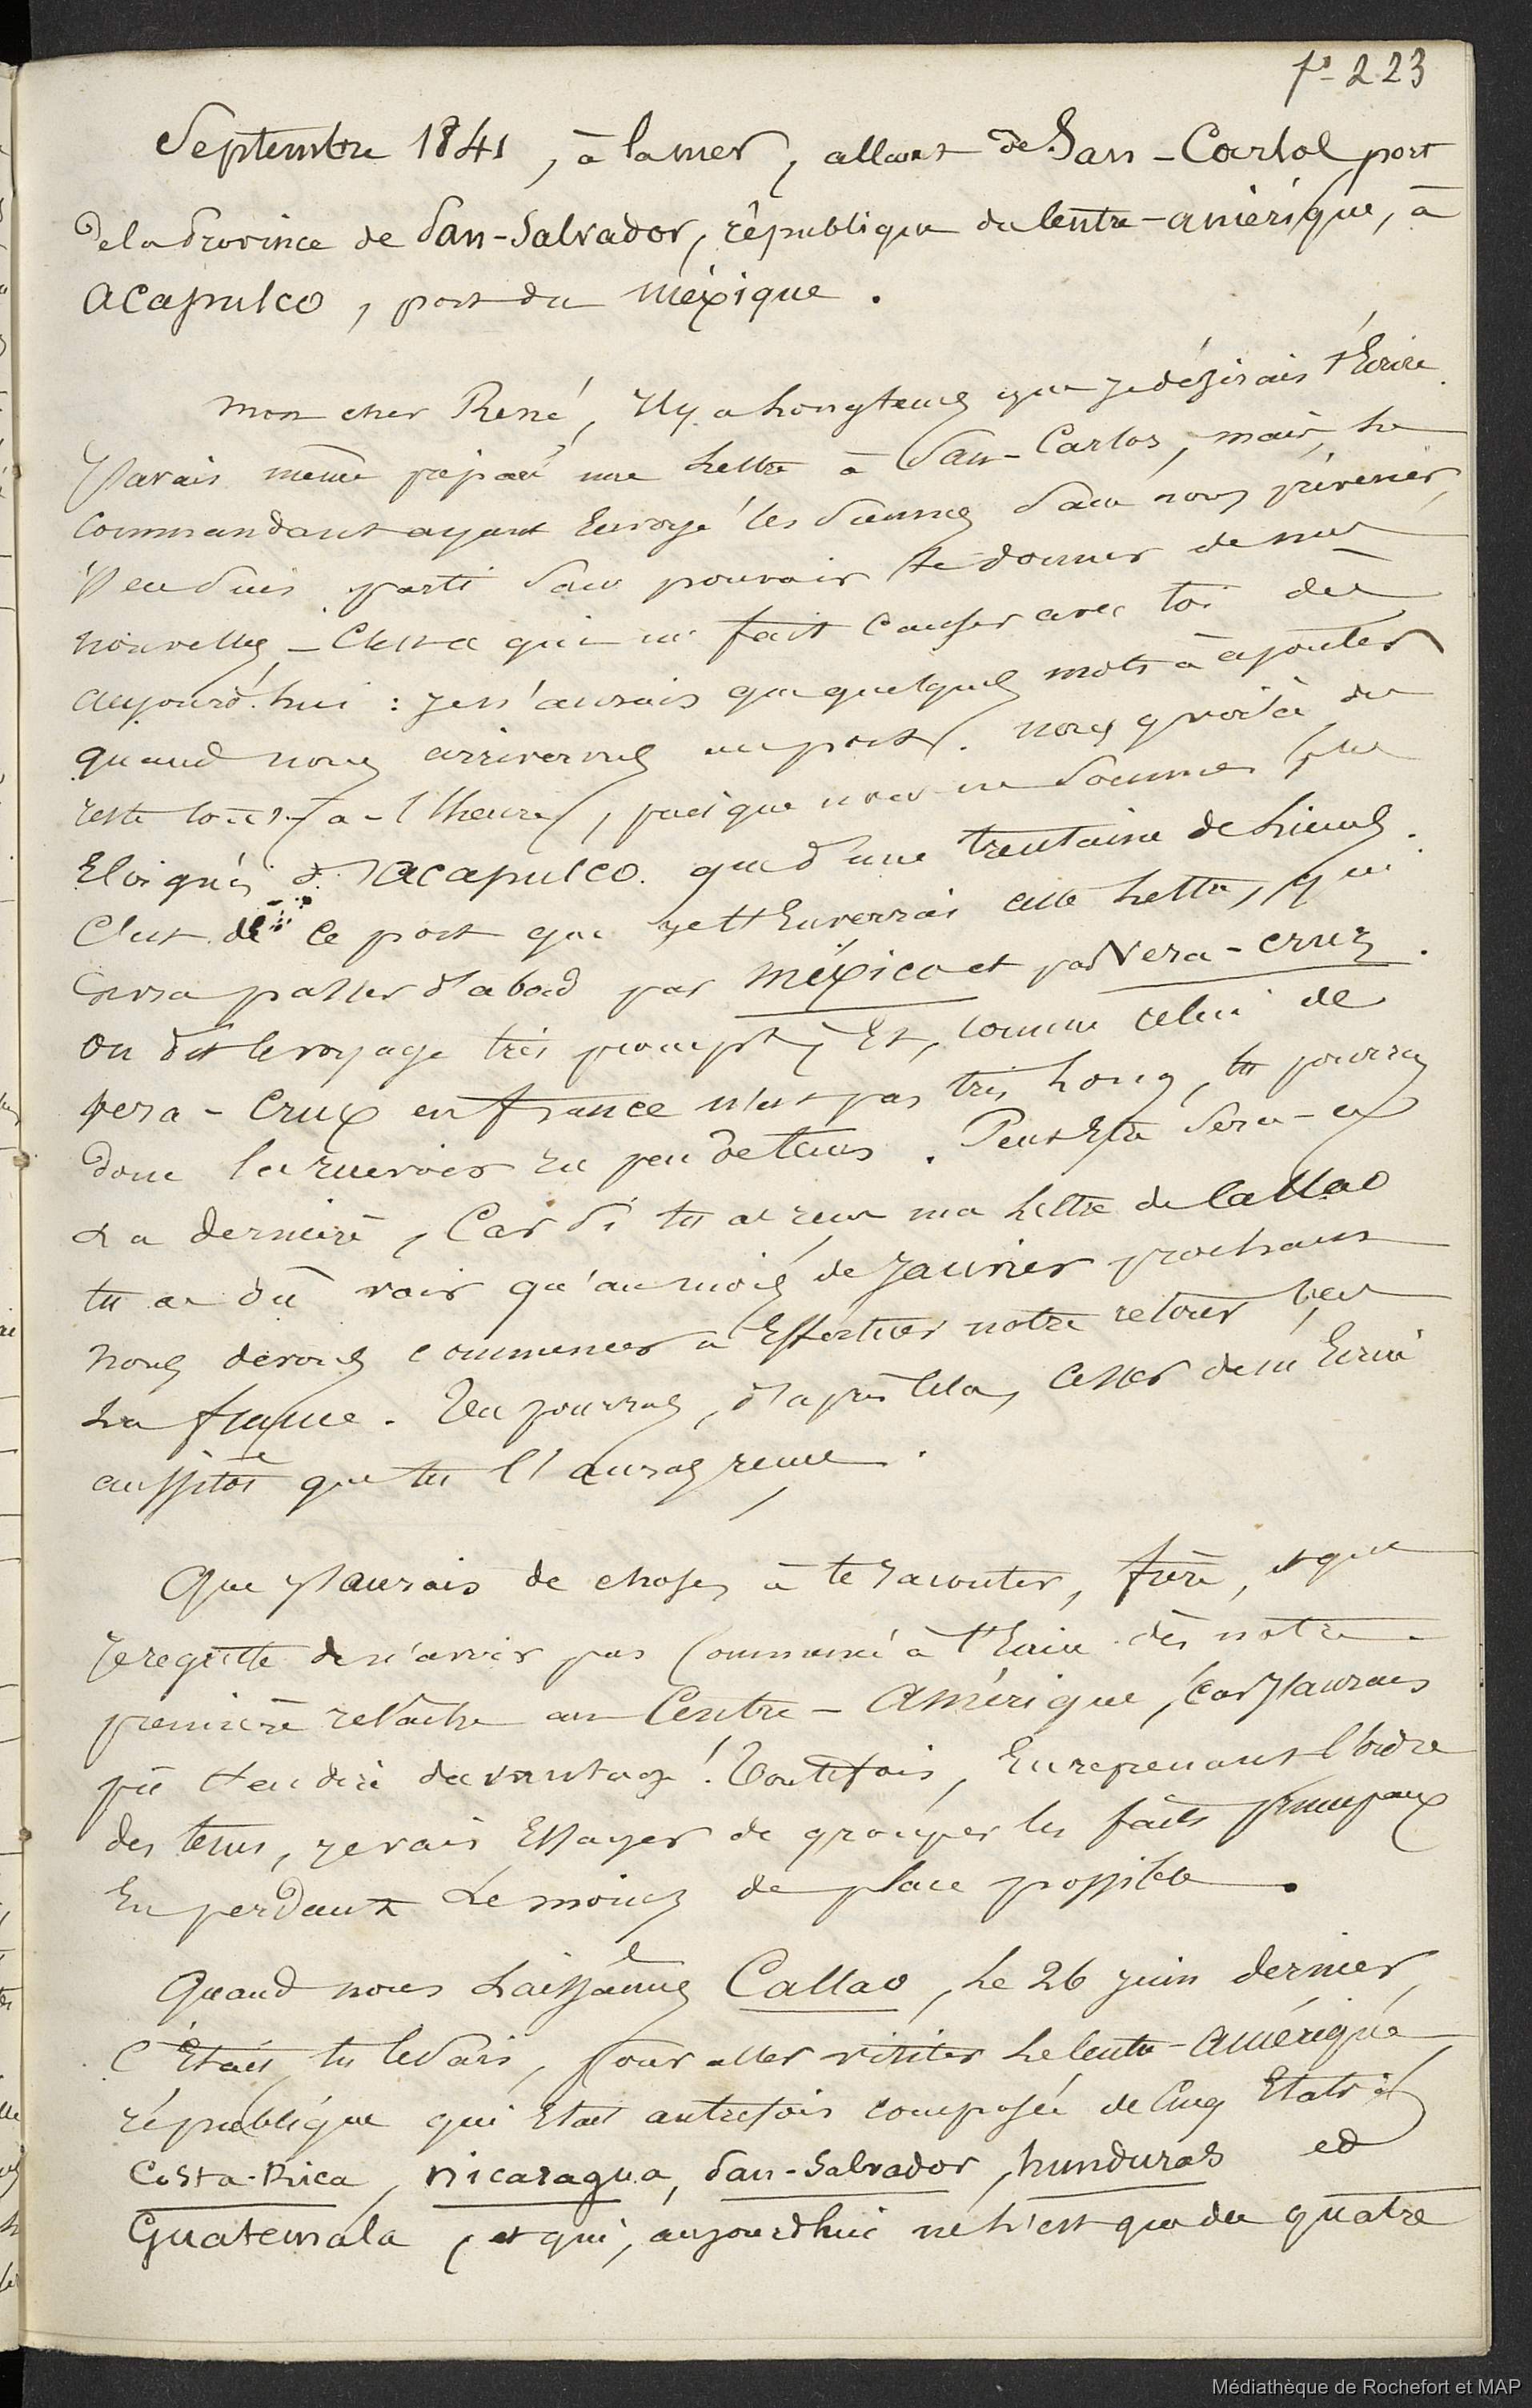 fo 223
Septembre 1841, à la mer, allant de San-Carlos port
de la province de San-Salvador, république du Centre-amérique, à
acapulco, port du méxique.
mon cher René, Il y a longtems que je dézirais t'Ecrire.
J'avais même préparé une lettre à San-Carlos, mais, le
Commandant ayant Envoyé les siennes sans nous prévenir,
j'en suis parti sans pouvoir te donner de mes
nouvelles – C'est ce qui me fait causer avec toi dès
aujourd'hui : je n'aurais que quelques mots à ajouter
quand nous arriverons au port. nous y voilà du
reste tout-à-l'heure, puisque nous ne sommes plus
Eloignés d'acapulco que d'une trentaine de lieues.
C'est de ce port que je t'Enverrai cette lettre, qui
devra passer d'abord par méxico et par Vera-cruz.
on dit le voyage très prompt, Et, comme celui de
Vera-Crux en france n'est pas très long, tu pourras
donc la recevoir en peu de tems. Peut Etre sera-ce
La dernière, Car si tu as reçu ma lettre de Callao
tu as dû voir qu'au mois de Janvier prochain
nous devons commencer à Effectuer notre retour vers
La france. Tu pourras, d'après cela, cesser de m'Ecrire
aussitôt que tu l'auras reçue.
Que j'aurais de choses à te raconter, frère, et que
Je regrette de n'avoir pas commencé à t'Ecrire dès notre
première relâche au Centre-Amérique, car j'aurais
pu t'en dire davantage ! Toutefois, En reprenant l'ordre
des tems, je vais Essayer de grouper les faits principaux
En perdant Le moins de place possible.
Quand nous Laissâmes Callao, le 26 juin dernier,
C'Etait, tu le sais, pour aller visiter le Centre-Amérique,
république qui Etait autrefois composée de Cinq Etats :
Costa-Rica, nicaragua, San-Salvador, hunduras et
Guatemala, et qui, aujourdhui ne l'est que de quatre
Médiathèque de Rochefort et MAP